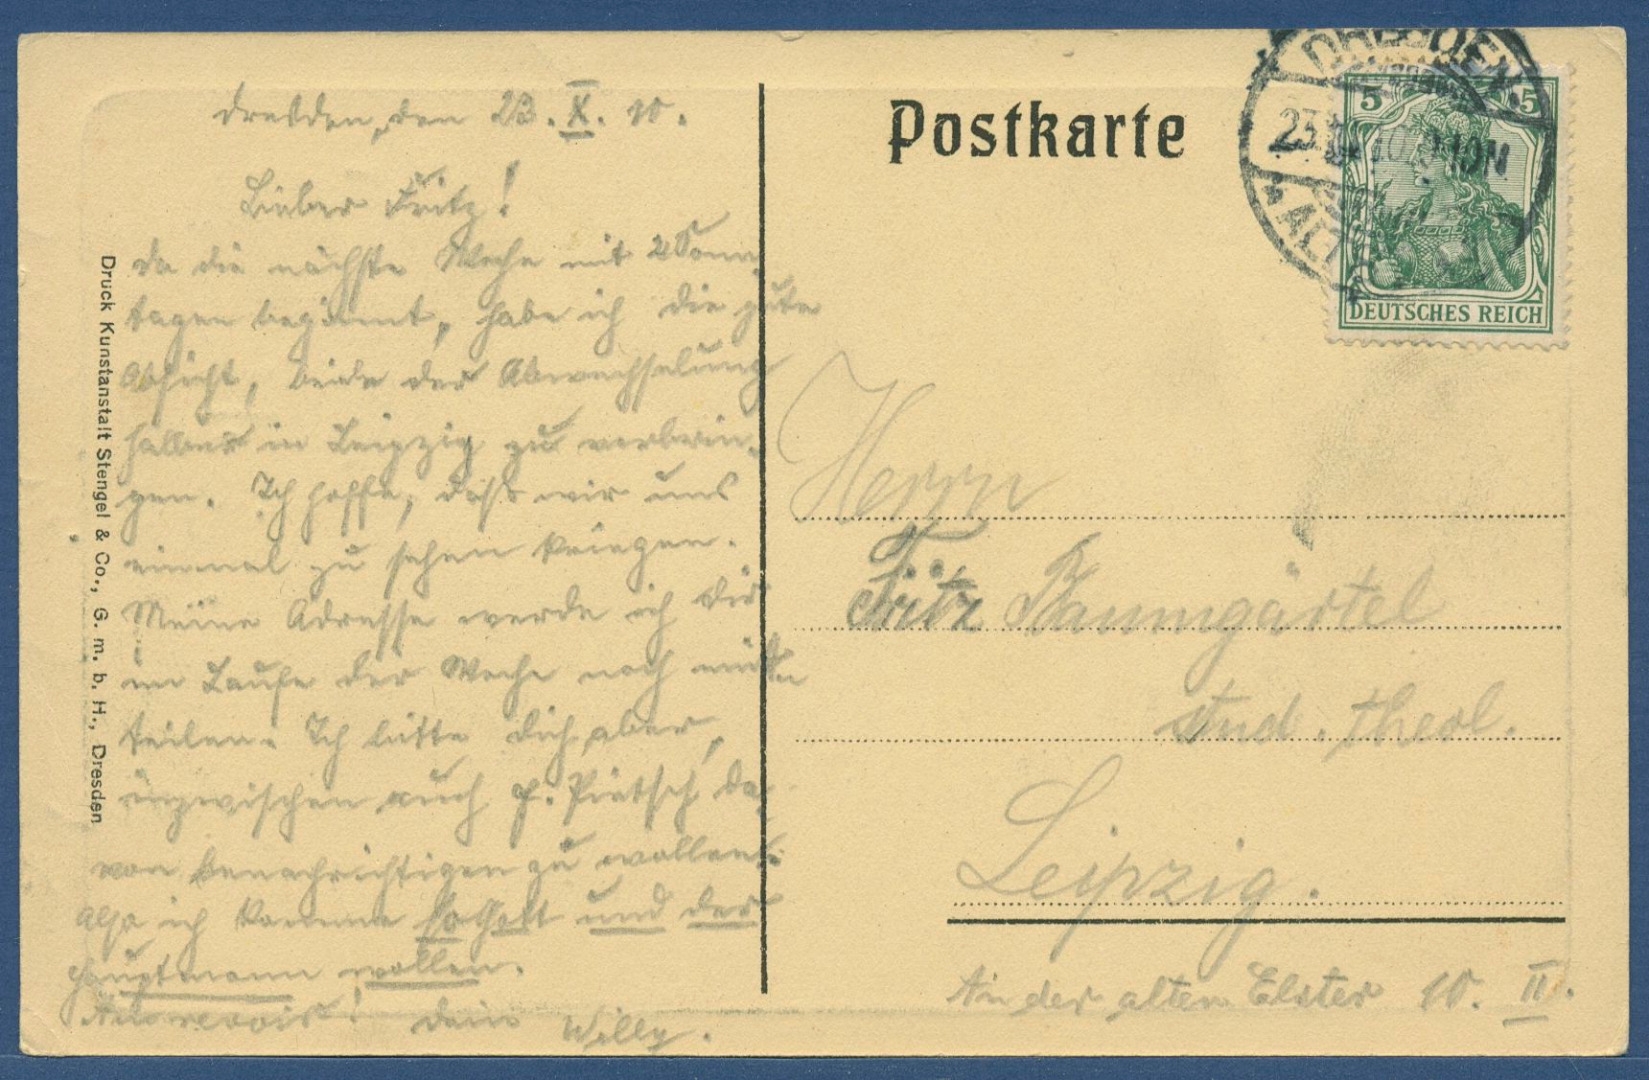 Dresden, den 23. X. 10.
Lieber Fritz!
Da die nächste Woche mit 2 Sonn-
tagen beginnt, habe ich die gute
Absicht, beide der Abwechselung
halber in Leipzig zu verbrin-
gen. Ich hoffe, daß wir uns
einmal zu sehen kriegen.
Meine Adresse werde ich Dir
im Laufe der Woche noch mit
teilen. Ich bitte Dich aber,
inzwischen auch P. Pietsch da-
von benachrichtigen zu wollen.
Also ich komme so Gott und der
Hauptmann wollen.
Au revoir! Dein Willy.
Druck Kunstanstalt Stengel & Co., G. m. b. H., Dresden
Postkarte
DRESDEN
23. 10. 10 N
ALTST.
5 5
DEUTSCHES REICH
Herrn
Fritz Baumgärtel
stud. theol.
Leipzig.
An der alten Elster 10. II.